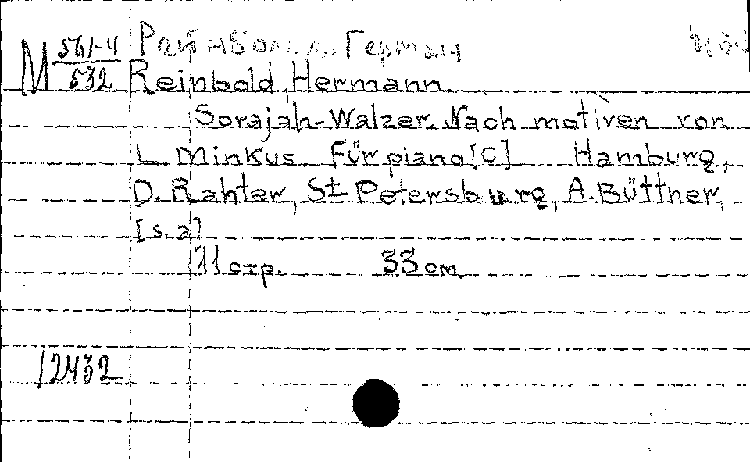 M 561-4/532 Райнбольд, Герман
Reinbold, Hermann.
Sorajah-Walzer. Nach motiven von
L. Minkus. Für piano[C] Hamburg,
D. Rahter, St Petersburg, A. Büttner,
[s. a]
11 стр. 33 cm
12432